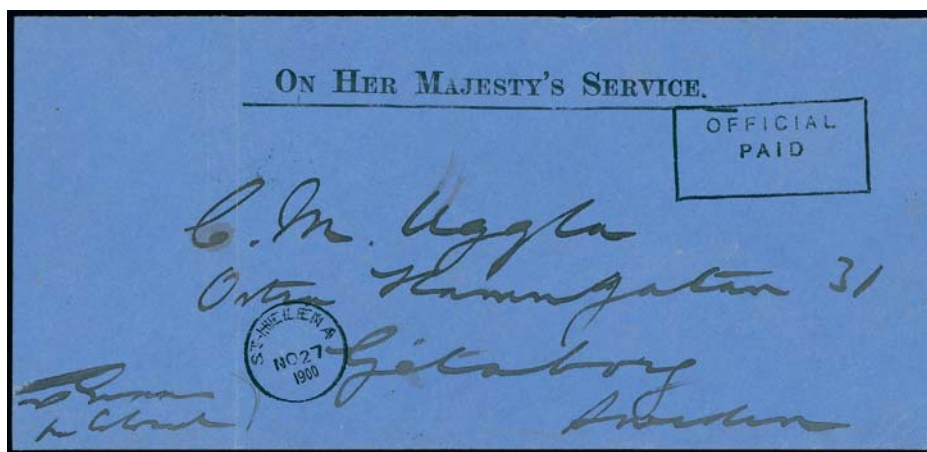 ON HER MAJESTY'S SERVICE.
OFFICIAL
PAID
C. M. Uggla
Ostra Hamngatan 31
Göteborg
Sweden
ST. HELENA
NO 27
1900